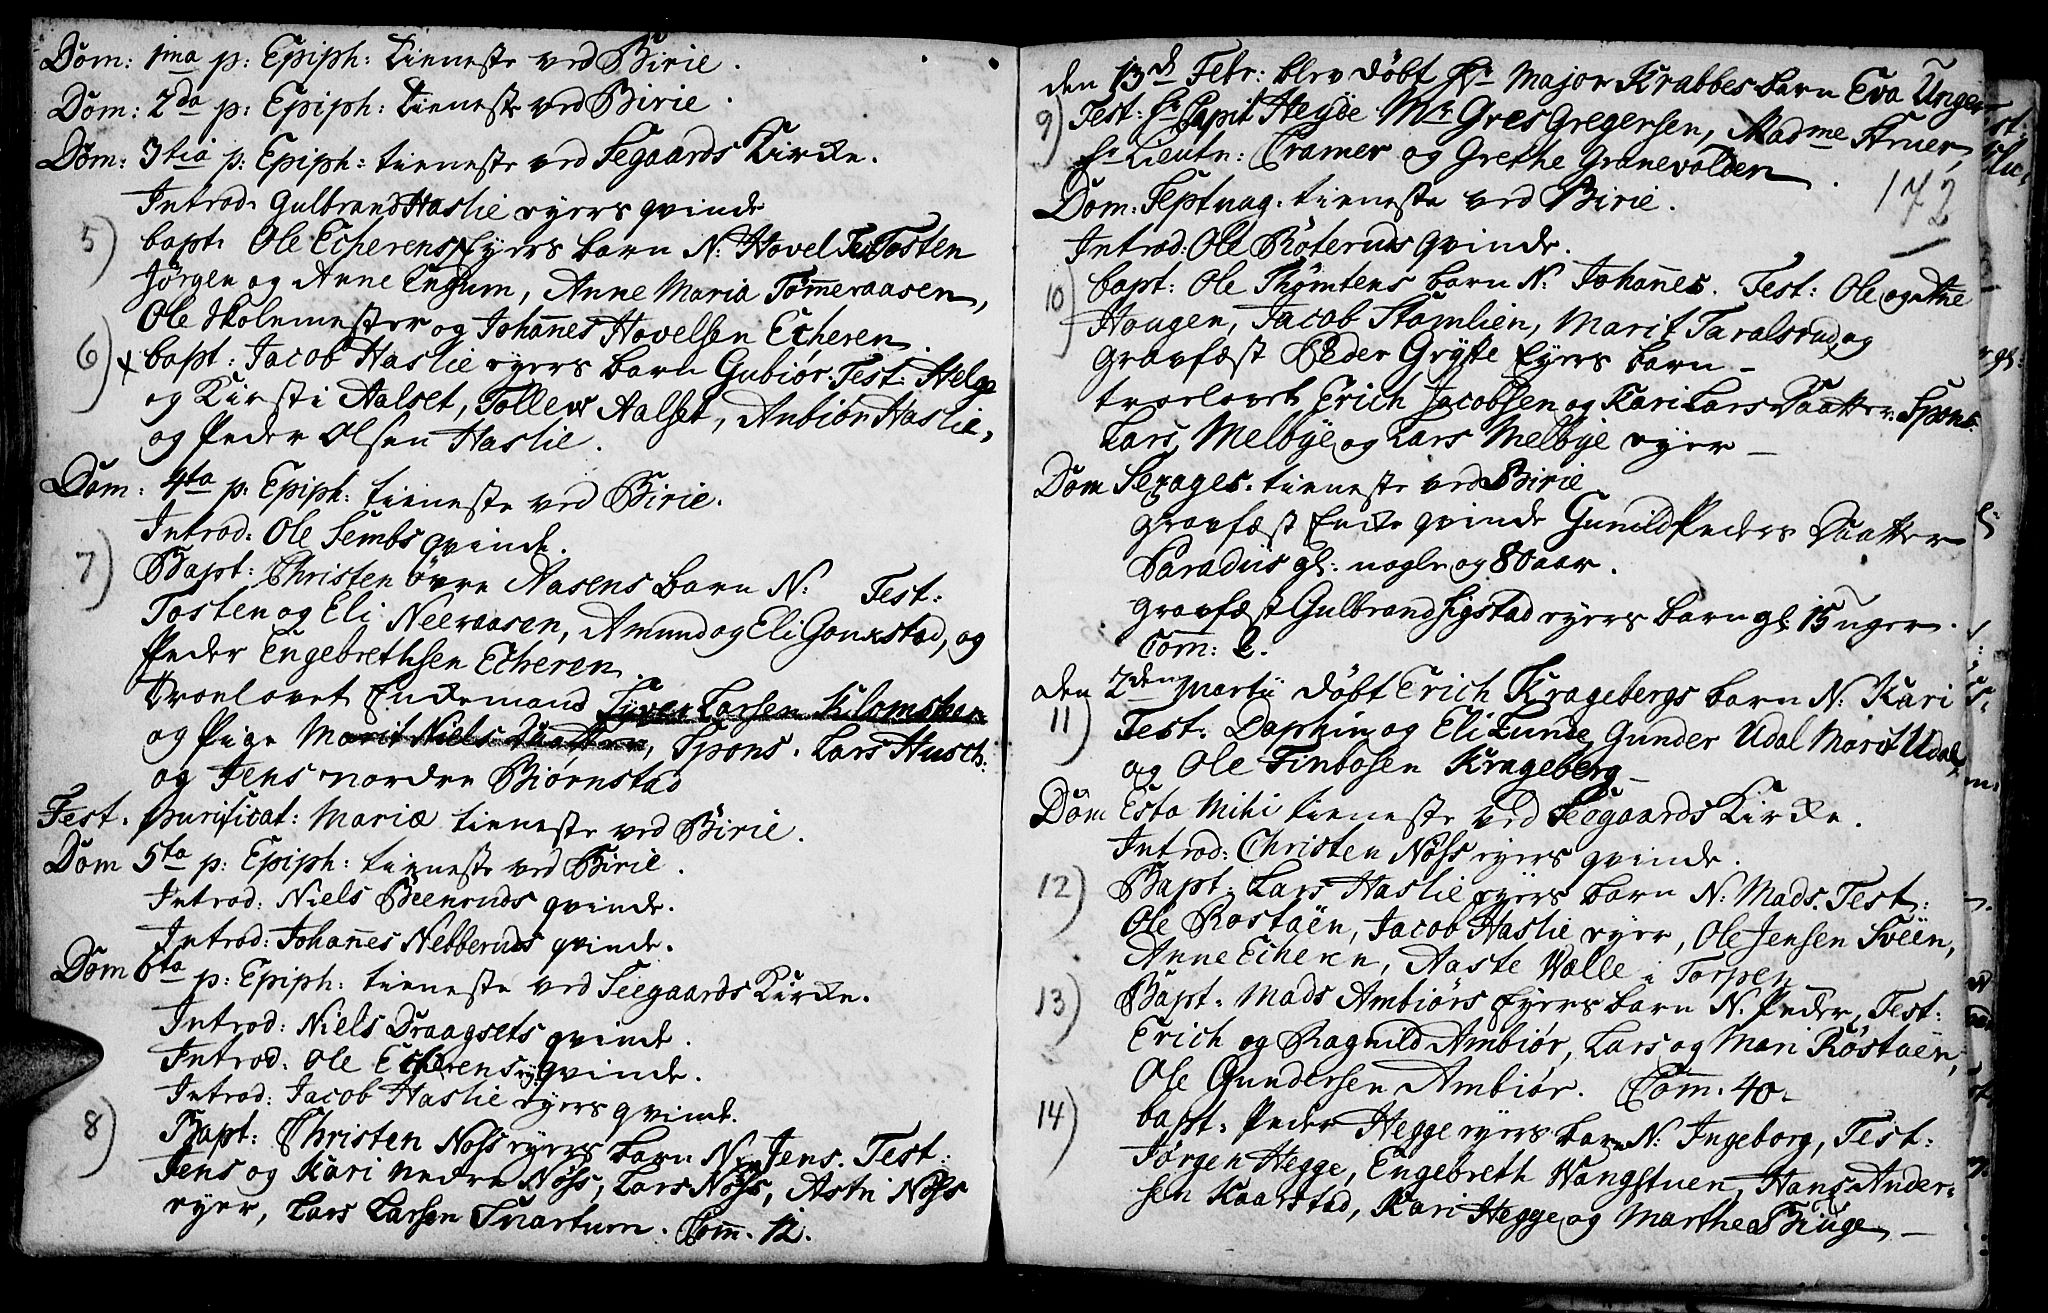 Dom: 1ma p: Epiph: tieneste ved Birie.
Dom: 2da p: Epiph: tieneste ved Birie.
Dom: 3tia p: Epiph: tieneste ved Segaards Kirke.
Introd. Gulbrand Haslie eyers qvinde
5) bapt. Ole Echerens Eyers barn N: Hovel Test Tosten
Jørgen og Anne Engum, Anne Maria Tømmeraasen,
Ole Skolemester og Johanes Hovelsen Echeren.
6) x bapt: Jacob Haslie eyers barn Gubiør. Test: Helge
og Kirsti Aalset, Tollev Aalset, Anbiør Haslie,
og Peder Olsen Haslie.
Dom: 4ta p: Epiph: tieneste ved Birie.
Introd: Ole Sembs qvinde.
7) Bapt: Christen övre Aasens barn N: Test:
Tosten og Eli Neeraasen, Amund og Eli Gonstad, og
Peder Engebrethsen Echeren.
Troelovet Enckemand Siver Larsen Kilomstuen
og Pige Marit Niels Daatter, Spons. Lars Husch:
og Jens nordre Biørnstad
Fest. purificat: Mariæ tieneste ved Birie.
Dom 5ta p: Epiph: tieneste ved Birie.
Introd: Niels Beeneruds qvinde.
Introd: Johanes Nebberuds qvinde.
Dom 6ta p: Epiph: tieneste ved Seegaards Kircke.
Introd: Niels Draagsets qvinde.
Introd: Ole Echerens ey: qvinde.
Introd: Jacob Haslie eyers qvinde.
8) Bapt: Christen Nöss eyers barn N. Jens. Test:
Jens og Kari nedre Nöss, Lars Nöss, Astri Nöss
eyer, Lars Larsen Svartum. Com. 12.
den 13d Febr: blev döbt Hr Major Krabbes barn Eva Unger
9) Test: Hr Capit Heyde Mr Gres Gregersen, Madme Struer,
Hr Lieutn: Cramer og Grethe Granevolden.
172
Dom: Septuag: tieneste ved Birie.
Introd: Ole Röteruds qvinde.
10) bapt: Ole Thömtens barn N: Johanes. Test: Ole og Ane
Hougen, Jacob Stomlien, Marit Taralsrud, og
gravfæst Peder Gryte Eyers barn –
troelovet Erich Jacobsen og Kari Lars Daatter: Spons:
Lars Melbye og Lars Melbye eyer –
Dom Sexages. tieneste ved Birie
gravfæst Encke qvinde Gunild Peders Daatter
Paradiis gl: nogle og 80 aar.
gravfæst Gulbrand Sigstad eyers barn gl: 15 uger.
Com: 2.
den 2den Martii döbt Erich Kragebergs barn N: Kari
11) Test: Daphin og Eli Lunde, Gunder Udal Marit Udal,
og Ole Finbosen Krageberg –
Dom Esto Mihi tieneste ved Seegaards Kircke.
Introd: Christen Nöss eyers qvinde.
12) Bapt: Lars Haslie eyers barn N: Mads. Test:
Ole Rostöen, Jacob Haslie eyer, Ole Jensen Sveen,
Anne Echeren, Aaste Valle i Torpen
13) Bapt: Mads Ambiörs Eyers barn N. Peder, Test:
Erich og Ragnild Ambiör, Lars og Mari Röstöen,
Ole Gundersen Ambiör. Com: 40.
14) bapt: Peder Hegge eyers barn N: Ingeborg, Test:
Jørgen Hegge, Engebreth Wangstuen, Hans Ander-
sen Kaarstad, Kari Hegge og Marthe Biuge –